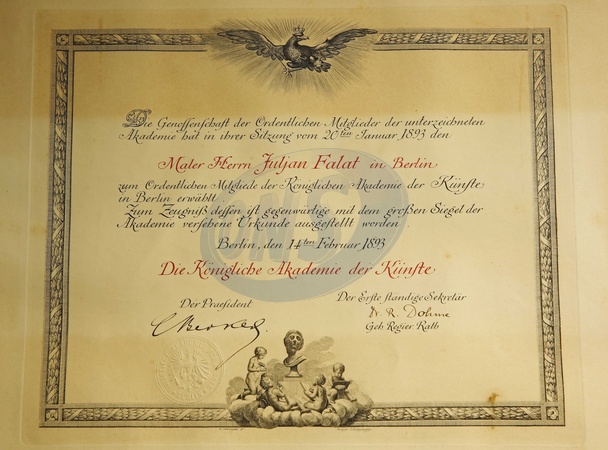 Die Genossenschaft der Ordentlichen Mitglieder der unterzeichneten
Akademie hat in ihrer Sitzung vom 20ten Januar 1893 den
Maler Herrn Juljan Falat in Berlin
zum Ordentlichen Mitgliede der Königlichen Akademie der Künste
in Berlin erwählt.
Zum Zeugniß dessen ist gegenwärtige mit dem großen Siegel der
Akademie versehene Urkunde ausgestellt worden.
Berlin, den 14ten Februar 1893
Die Königliche Akademie der Künste
Der Praesident
Der Erste ständige Sekretär
Dr. R. Dohme
Geh Regier. Rath